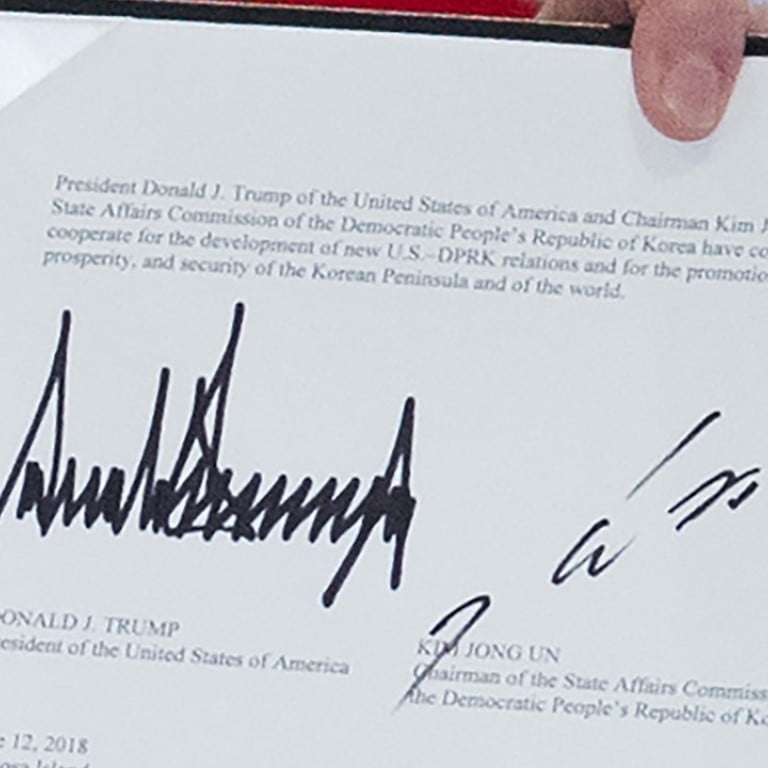 President Donald J. Trump of the United States of America and Chairman Kim J
State Affairs Commission of the Democratic People's Republic of Korea have co
cooperate for the development of new U.S.–DPRK relations and for the promotio
prosperity, and security of the Korean Peninsula and of the world.
ONALD J. TRUMP
esident of the United States of America
KIM JONG UN
Chairman of the State Affairs Commiss
the Democratic People's Republic of Ko
e 12, 2018